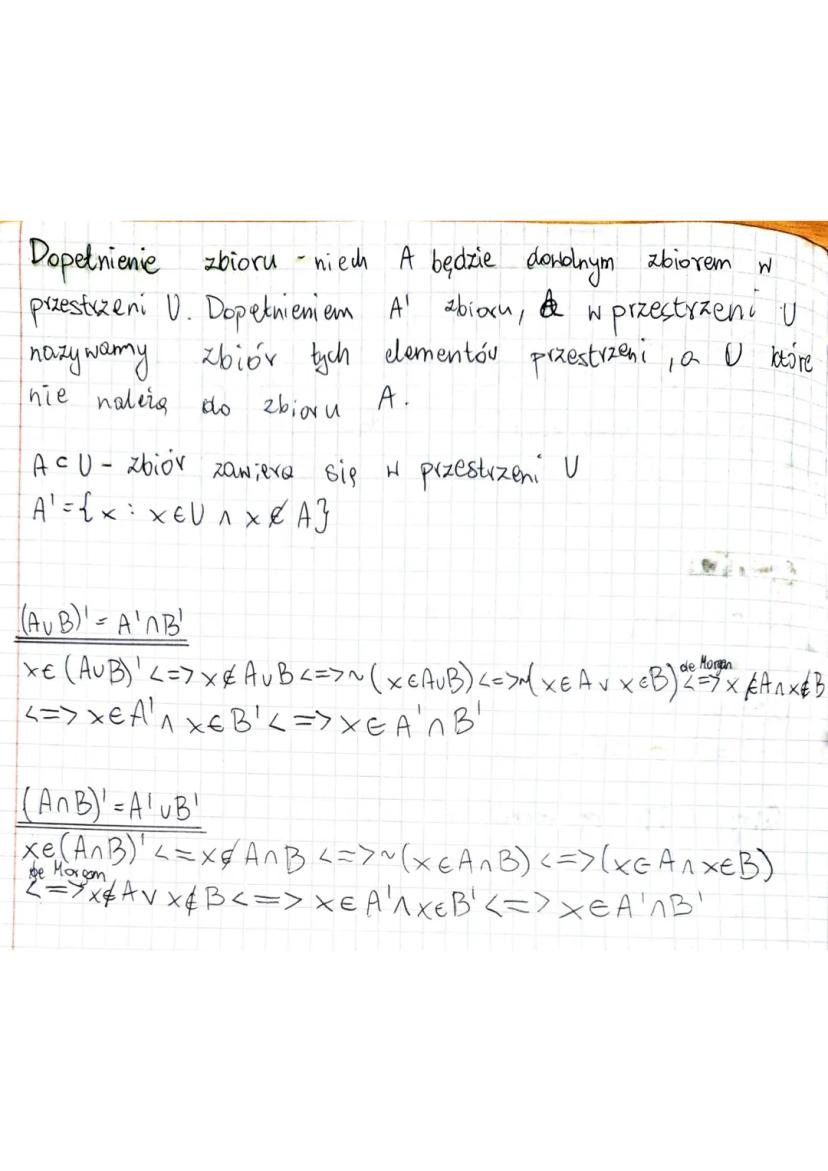 Dopełnienie zbioru - niech A będzie dowolnym zbiorem w
przestrzeni U. Dopełnieniem A' zbioru, A w przestrzeni U
nazywamy zbiór tych elementów przestrzeni, a U które
nie należą do zbioru A.
A ⊂ U - zbiór zawiera się w przestrzeni U
A' = {x : x ∈ U ∧ x ∉ A}
(A∪B)' = A'∩B'
x ∈ (A∪B)' <=> x ∉ A∪B <=> ~(x ∈ A∪B) <=> ~(x ∈ A ∨ x ∈ B) de Morgan <=> x ∉ A ∧ x ∉ B
<=> x ∈ A' ∧ x ∈ B' <=> x ∈ A'∩B'
(A∩B)' = A'∪B'
x ∈ (A∩B)' <= x ∉ A∩B <=> ~(x ∈ A∩B) <=> (x ∈ A ∧ x ∈ B)
de Morgan <=> x ∉ A ∨ x ∉ B <=> x ∈ A' ∧ x ∈ B' <=> x ∈ A'∩B'